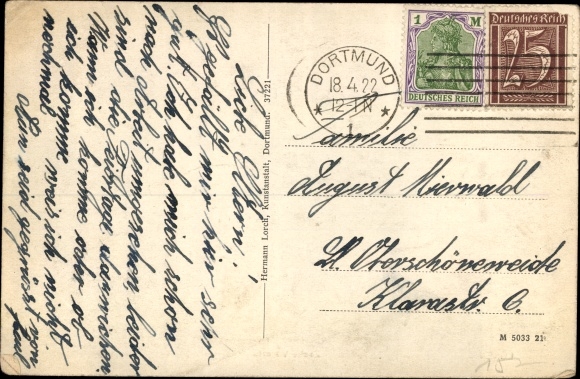 Liebe Eltern!
Gefällt mir hier sehr
gut. Ich habe mich schon
nach Arbeit umgesehen, leider
sind die
Wann ich komme oder ob
ich komme weis ich nicht
nochmal
Nun seid gegrüßt von
Paul
Hermann Lorch, Kunstanstalt, Dortmund. 37221
DORTMUND
18.4.22
12-1N
1 M
DEUTSCHES REICH
Deutsches Reich
25
Familie
August Mierwald
Bl. Oberschöneweide
Klarastr. 6.
M 5033 21